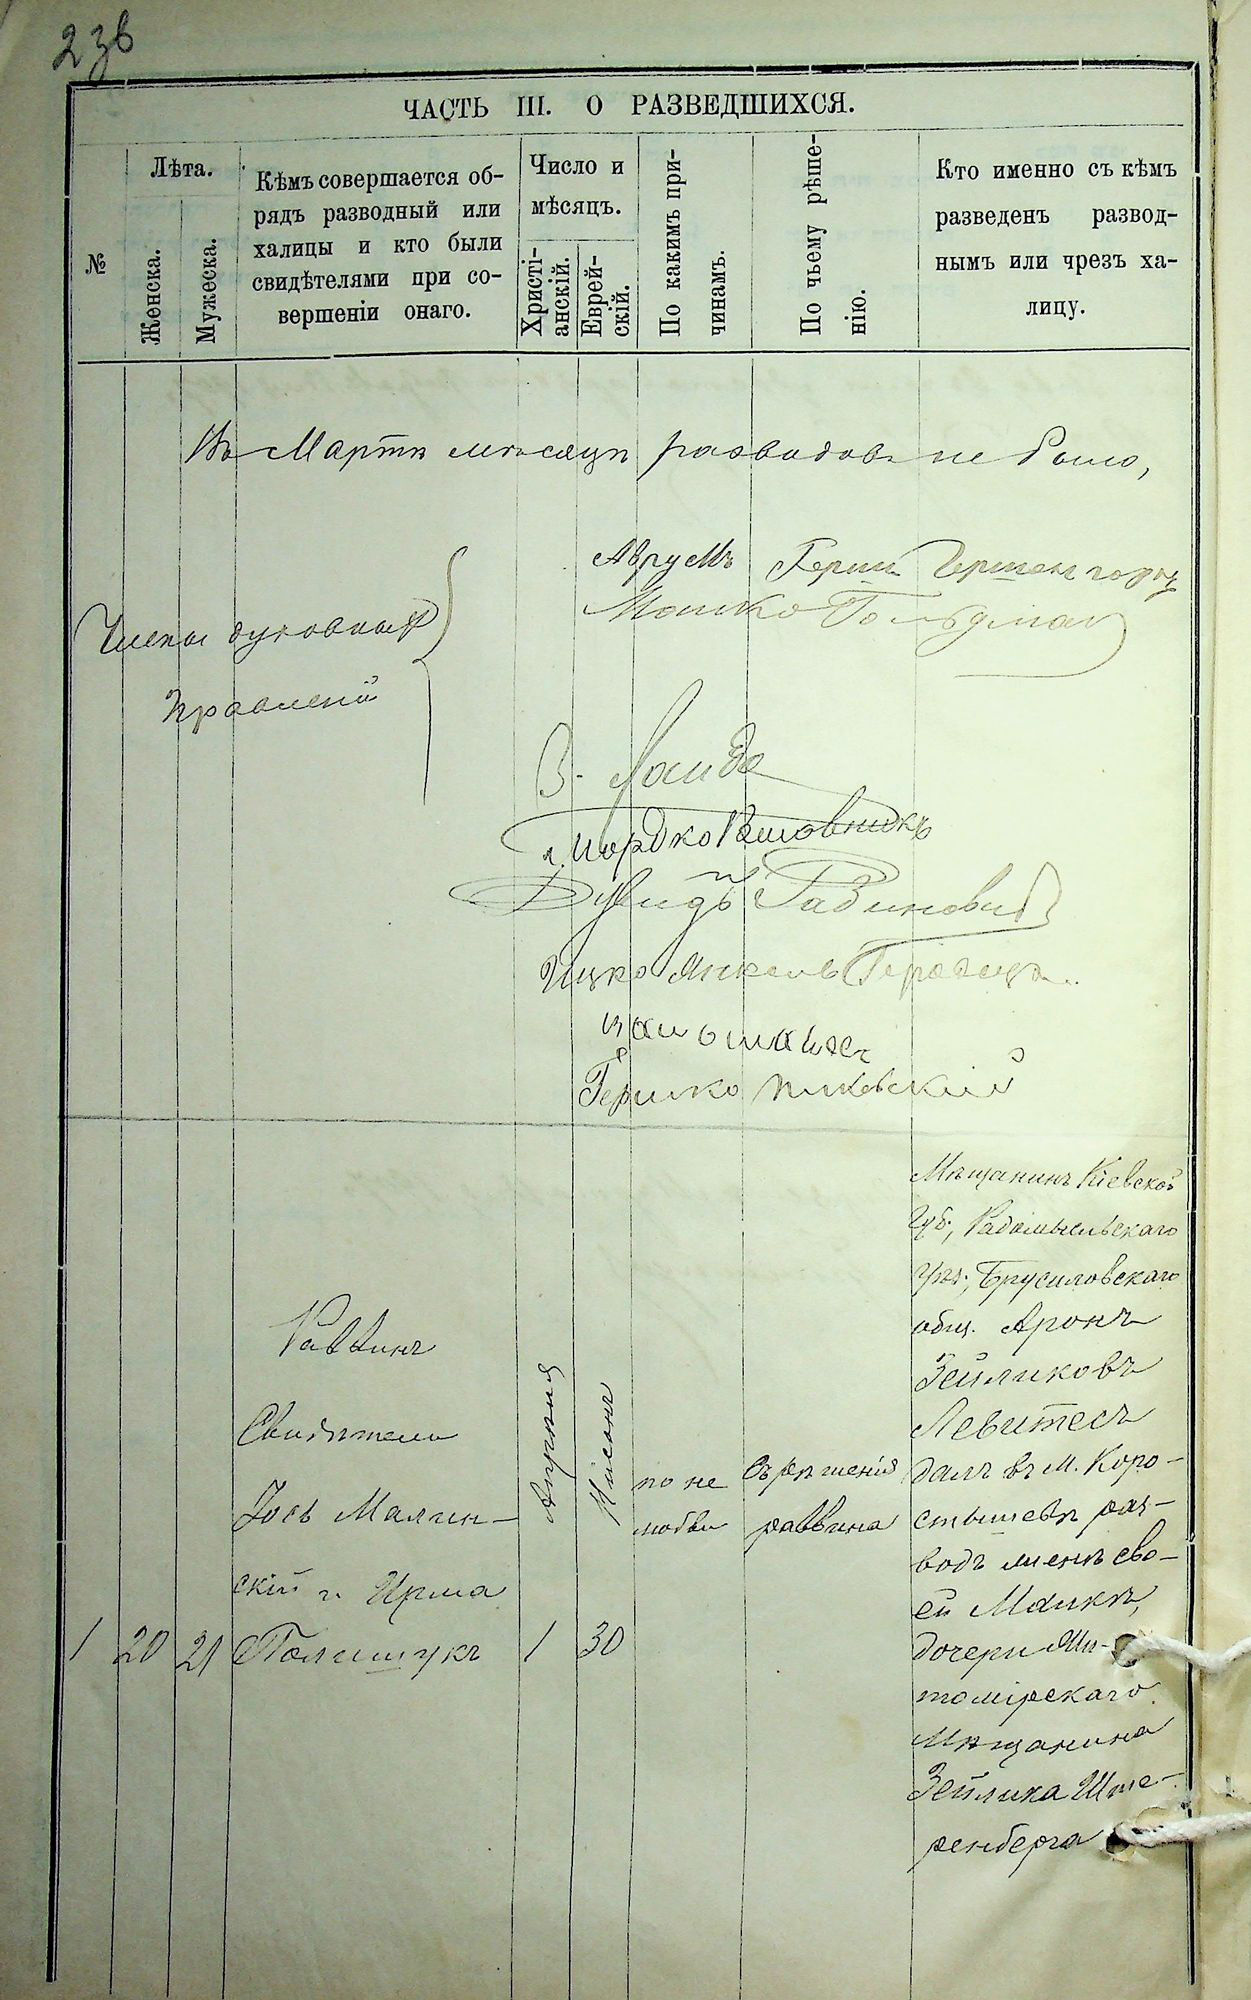 236
ЧАСТЬ III. О РАЗВЕДШИХСЯ.
№
Лѣта.
Женска.
Мужеска.
Кѣмъ совершается об-
рядъ разводный или
халицы и кто были
свидѣтелями при со-
вершеніи онаго.
Число и
мѣсяцъ.
Христі-
анскій.
Еврей-
скій.
По какимъ при-
чинамъ.
По чьему рѣше-
нію.
Кто именно съ кѣмъ
разведенъ развод-
нымъ или чрезъ ха-
лицу.
Въ Мартѣ мѣсяцѣ разводовъ не было,
Аврумъ Герш
Мошко Гольдман
Члены духовных
правленій
З. Ланда
Мордко
Дувидъ Рабинович
Ицко Янкель
Гершко
Раввинъ
Свидѣтели
Іось Малин-
скій и Ирма
Полищукъ
1
20
21
Апрѣля
1
Нисонъ
30
по не
любви
Съ рѣшенія
раввина
Мѣщанинъ Кіевской
Губ., Радомысльскаго
Уѣз., Брусиловскаго
общ. Аронъ
Зейликовъ
Левитесъ
далъ въ м. Коро-
стышевѣ раз-
водъ женѣ сво-
ей Малкѣ,
дочери Жи-
томірскаго
Мѣщанина
Зейлика Ште-
ренберга